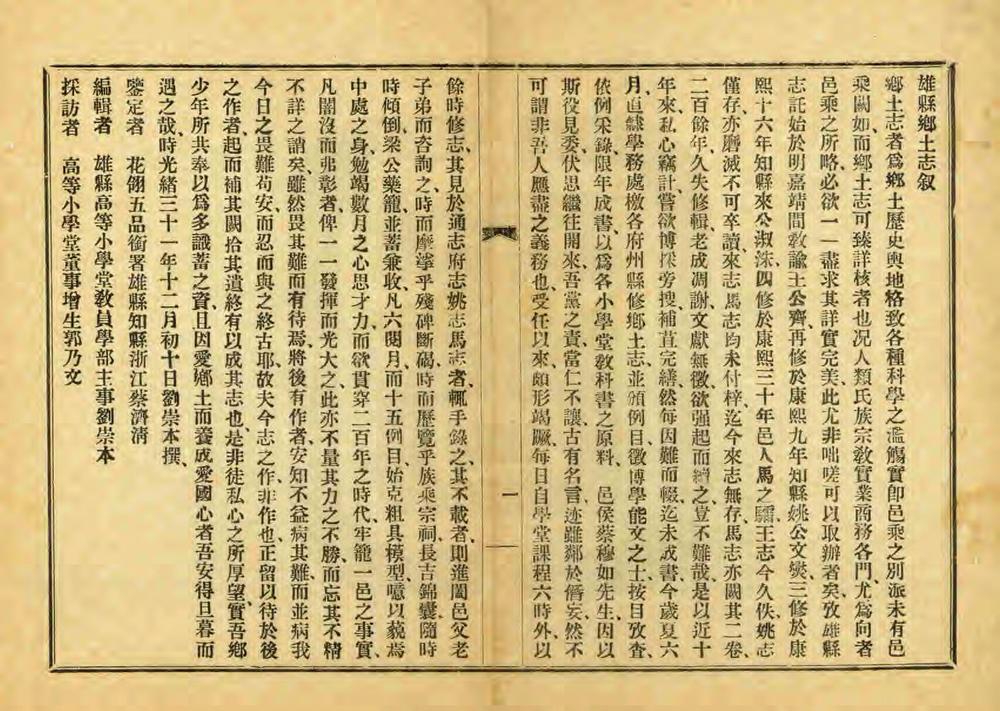 雄縣鄉土志叙
鄉土志者爲鄉土歷史輿地格致各種科學之濫觴實卽邑乘之別派未有邑
乘闕如、而鄉土志可臻詳核者也况人類氏族宗敎實業商務各門、尤爲向者
邑乘之所略、必欲一一盡求其詳實完美、此尤非咄嗟可以取辦者矣攷雄縣
志託始於明嘉靖間敎諭王公齊再修於康熙九年知縣姚公文燮三修於康
熙十六年知縣來公淑洙四修於康熙三十年邑人馬之驦王志今久佚姚志
僅存、亦磨滅不可卒讀、來志馬志均未付梓迄今來志無存、馬志亦闕其二卷、
二百餘年、久失修輯、老成凋謝、文獻無徵欲强起而續之、豈不難哉是以近十
年來、私心竊計、嘗欲博採旁搜補苴完繕、然每因難而輟迄未成書、今歲夏六
月、直隷學務處檄各府州縣修鄉土志並頒例目徵博學能文之士按目攷査
依例采錄限年成書、以爲各小學堂敎科書之原料、邑侯蔡穆如先生、因以
斯役見委伏思繼往開來、吾黨之責、當仁不讓、古有名言、迹雖鄰於僭妄、然不
可謂非吾人應盡之義務也、受任以來、頗形竭蹶、每日自學堂課程六時外、以
餘時修志、其見於通志府志姚志馬志者、輒手錄之、其不載者、則進闔邑父老
子弟而咨詢之、時而摩挲乎殘碑斷碣、時而歷覽乎族乘宗祠、長吉錦囊、隨時
時傾倒、梁公藥籠、並蓄兼收、凡六閱月、而十五例目始克粗具模型、噫以藐焉
中處之身、勉竭數月之心思才力、而欲貫穿二百年之時代、牢籠一邑之事實、
凡闇沒而弗彰者、俾一一發揮而光大之、此亦不量其力之不勝、而忘其不精
不詳之誚矣、雖然畏其難而有待焉、將後有作者、安知不益病其難、而並病我
今日之畏難苟安、而忍而與之終古耶、故夫今志之作、非作也、正留以待於後
之作者、起而補其闕拾其遺、終有以成其志也、是非徒私心之所厚望、實吾鄉
少年所共奉以爲多識蓄之資、且因愛鄉土而養成愛國心者、吾安得旦暮而
遇之哉、時光緒三十一年十二月初十日劉崇本撰、
鑒定者　花翎五品銜署雄縣知縣浙江蔡濟淸
編輯者　雄縣高等小學堂敎員學部主事劉崇本
採訪者　高等小學堂董事增生郭乃文
一